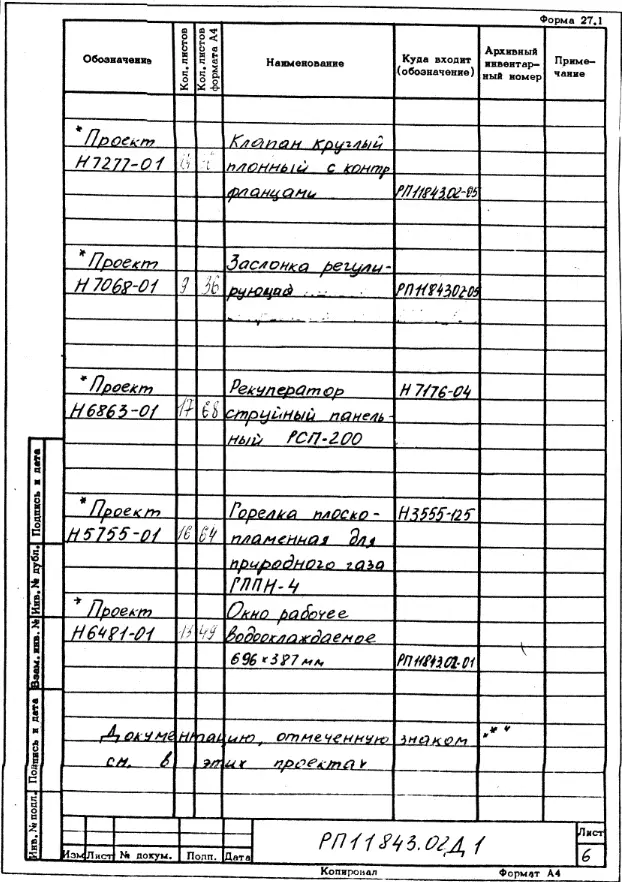 Форма 27.1
Обозначение Кол. листов Кол. листов формата А4 Наименование Куда входит (обозначение) Архивный инвентарный номер Примечание
*Проект Клапан круглый
Н7277-01 плонный с контр
фланцами РП11843.02-05
*Проект Заслонка регули-
Н7068-01 9 36 рующая РП11843.02-05
*Проект Рекуператор Н7176-04
Н6863-01 17 68 струйный панель-
ный РСП-200
*Проект Горелка плоско- Н3555-125
Н5755-01 16 64 пламенная для
природного газа
ГППН-4
*Проект Окно рабочее
Н6481-01 13 49 водоохлаждаемое
696×387мм РП11843.02-01
Документацию, отмеченную знаком „*"
см. в этих проектах
Инв. № подл. Подпись и дата Взам. инв. № Инв. № дубл. Подпись и дата
РП11843.02Д1
Лист
6
Изм Лист № докум. Подп. Дата
Копировал Формат А4